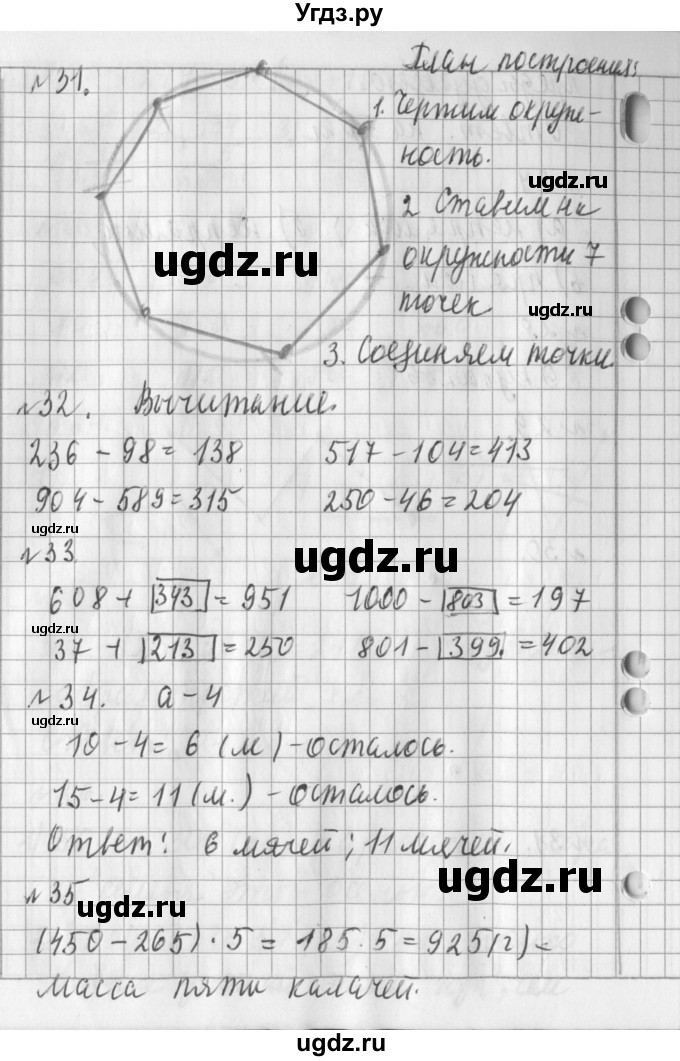 Угдз.ру
№31.
План построения:
1. Чертим окруж-
ность.
ugdz.ru
2 Ставим на
окружности 7
точек
ugdz.ru
ugdz.ru
3. Соединяем точки.
№32. Вычитание.
236 - 98 = 138 517 - 104 = 413
904 - 589 = 315 250 - 46 = 204
ugdz.ru
ugdz.ru
№33
608 + 343 = 951 1000 - 803 = 197
ugdz.ru
37 + 213 = 250 801 - 399 = 402
№34. а - 4
ugdz.ru
10 - 4 = 6 (м) - осталось.
15 - 4 = 11 (м.) - осталось.
Ответ: 6 мячей; 11 мячей.
ugdz.ru
№35
ugdz.ru
(450 - 265) · 5 = 185 · 5 = 925 (г) -
масса пяти калачей.
ugdz.ru
ugdz.ru